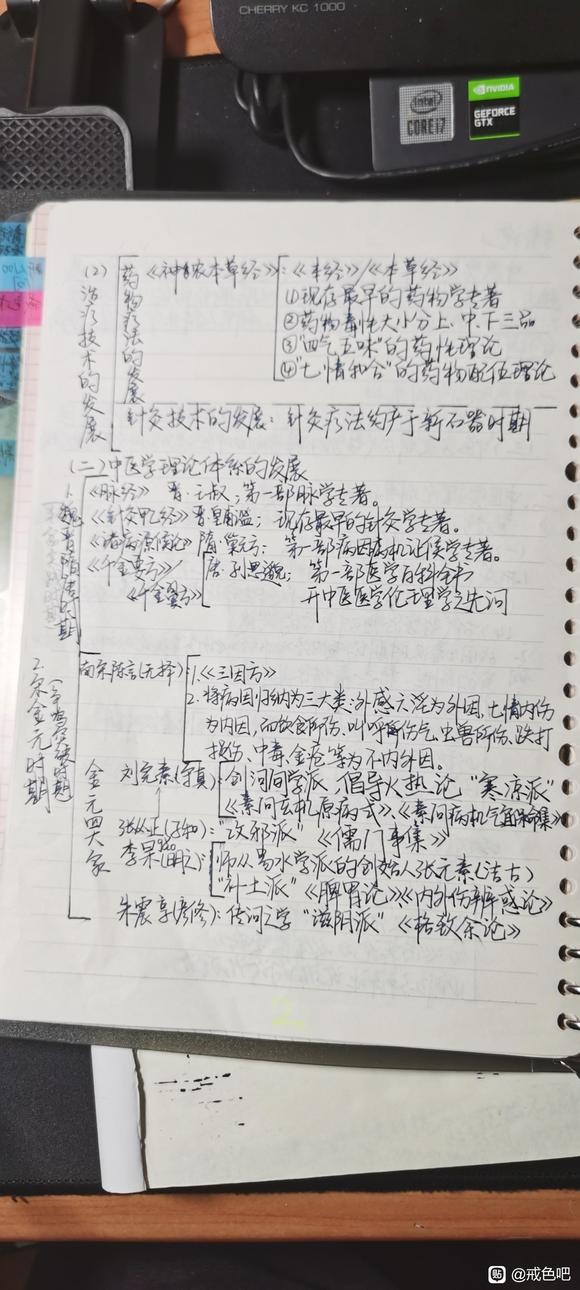 CHERRY KC 1000
intel
CORE i7
NVIDIA
GEFORCE
GTX
(2)治疗技术的发展
药物疗法的发展
《神农本草经》:《本经》/《本草经》
①现存最早的药物学专著
②药物毒性大小分上、中、下三品
③"四气五味"的药性理论
④"七情和合"的药物配伍理论
针灸技术的发展:针灸疗法约产于新石器时期
(二)中医学理论体系的发展
1.魏晋隋唐时期
《脉经》 晋·王叔;第一部脉学专著。
《针灸甲乙经》晋皇甫谧;现存最早的针灸学专著。
《诸病源候论》隋·巢元方;第一部病因病机证候学专著。
《千金要方》/ 唐·孙思邈:第一部医学百科全书
《千金翼方》 开中医医学伦理学之先河
2.宋金元时期
南宋陈言(无择):1.《三因方》
2.将病因归纳为三大类:外感六淫为外因,七情内伤
为内因,而饮食所伤、叫呼所伤气、虫兽所伤、跌打
损伤、中毒、金疮等为不内外因。
金元四大家
刘完素(守真):创河间学派,倡导火热论"寒凉派"
《素问玄机原病式》、《素问病机气宜保命集》
张从正(子和):"攻邪派"《儒门事亲》
李杲(明之):师从易水学派的创始人张元素(洁古)
"补土派"《脾胃论》《内外伤辨惑论》
朱震亨(彦修):传河之学"滋阴派"《格致余论》
2
贴 @戒色吧